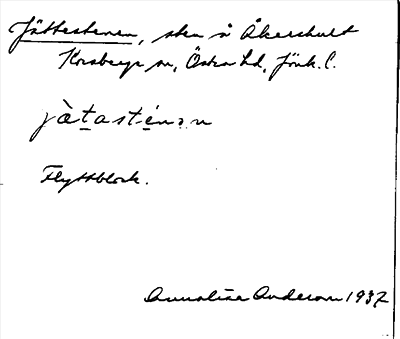 Jättestenen, sten å Åkershult
Korsberga sn, Östra hd, Jönk. l.
jὰt̲astén̲ən
Flyttblock.
Annalisa Anderson 1937